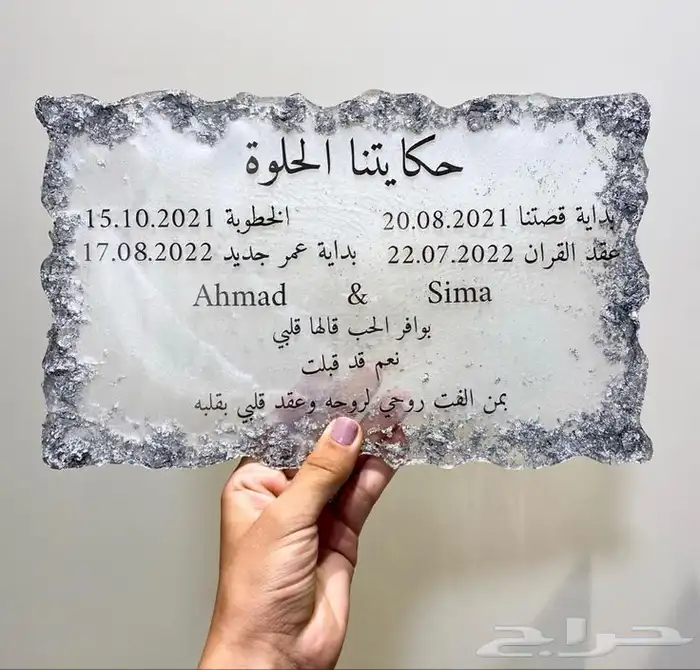 حكايتنا الحلوة
بداية قصتنا 20.08.2021 الخطوبة 15.10.2021
عقد القران 22.07.2022 بداية عمر جديد 17.08.2022
Ahmad & Sima
بوافر الحب قالها قلبي
نعم قد قبلت
بمن الفت روحي لروحه وعقد قلبي بقلبه
حراج